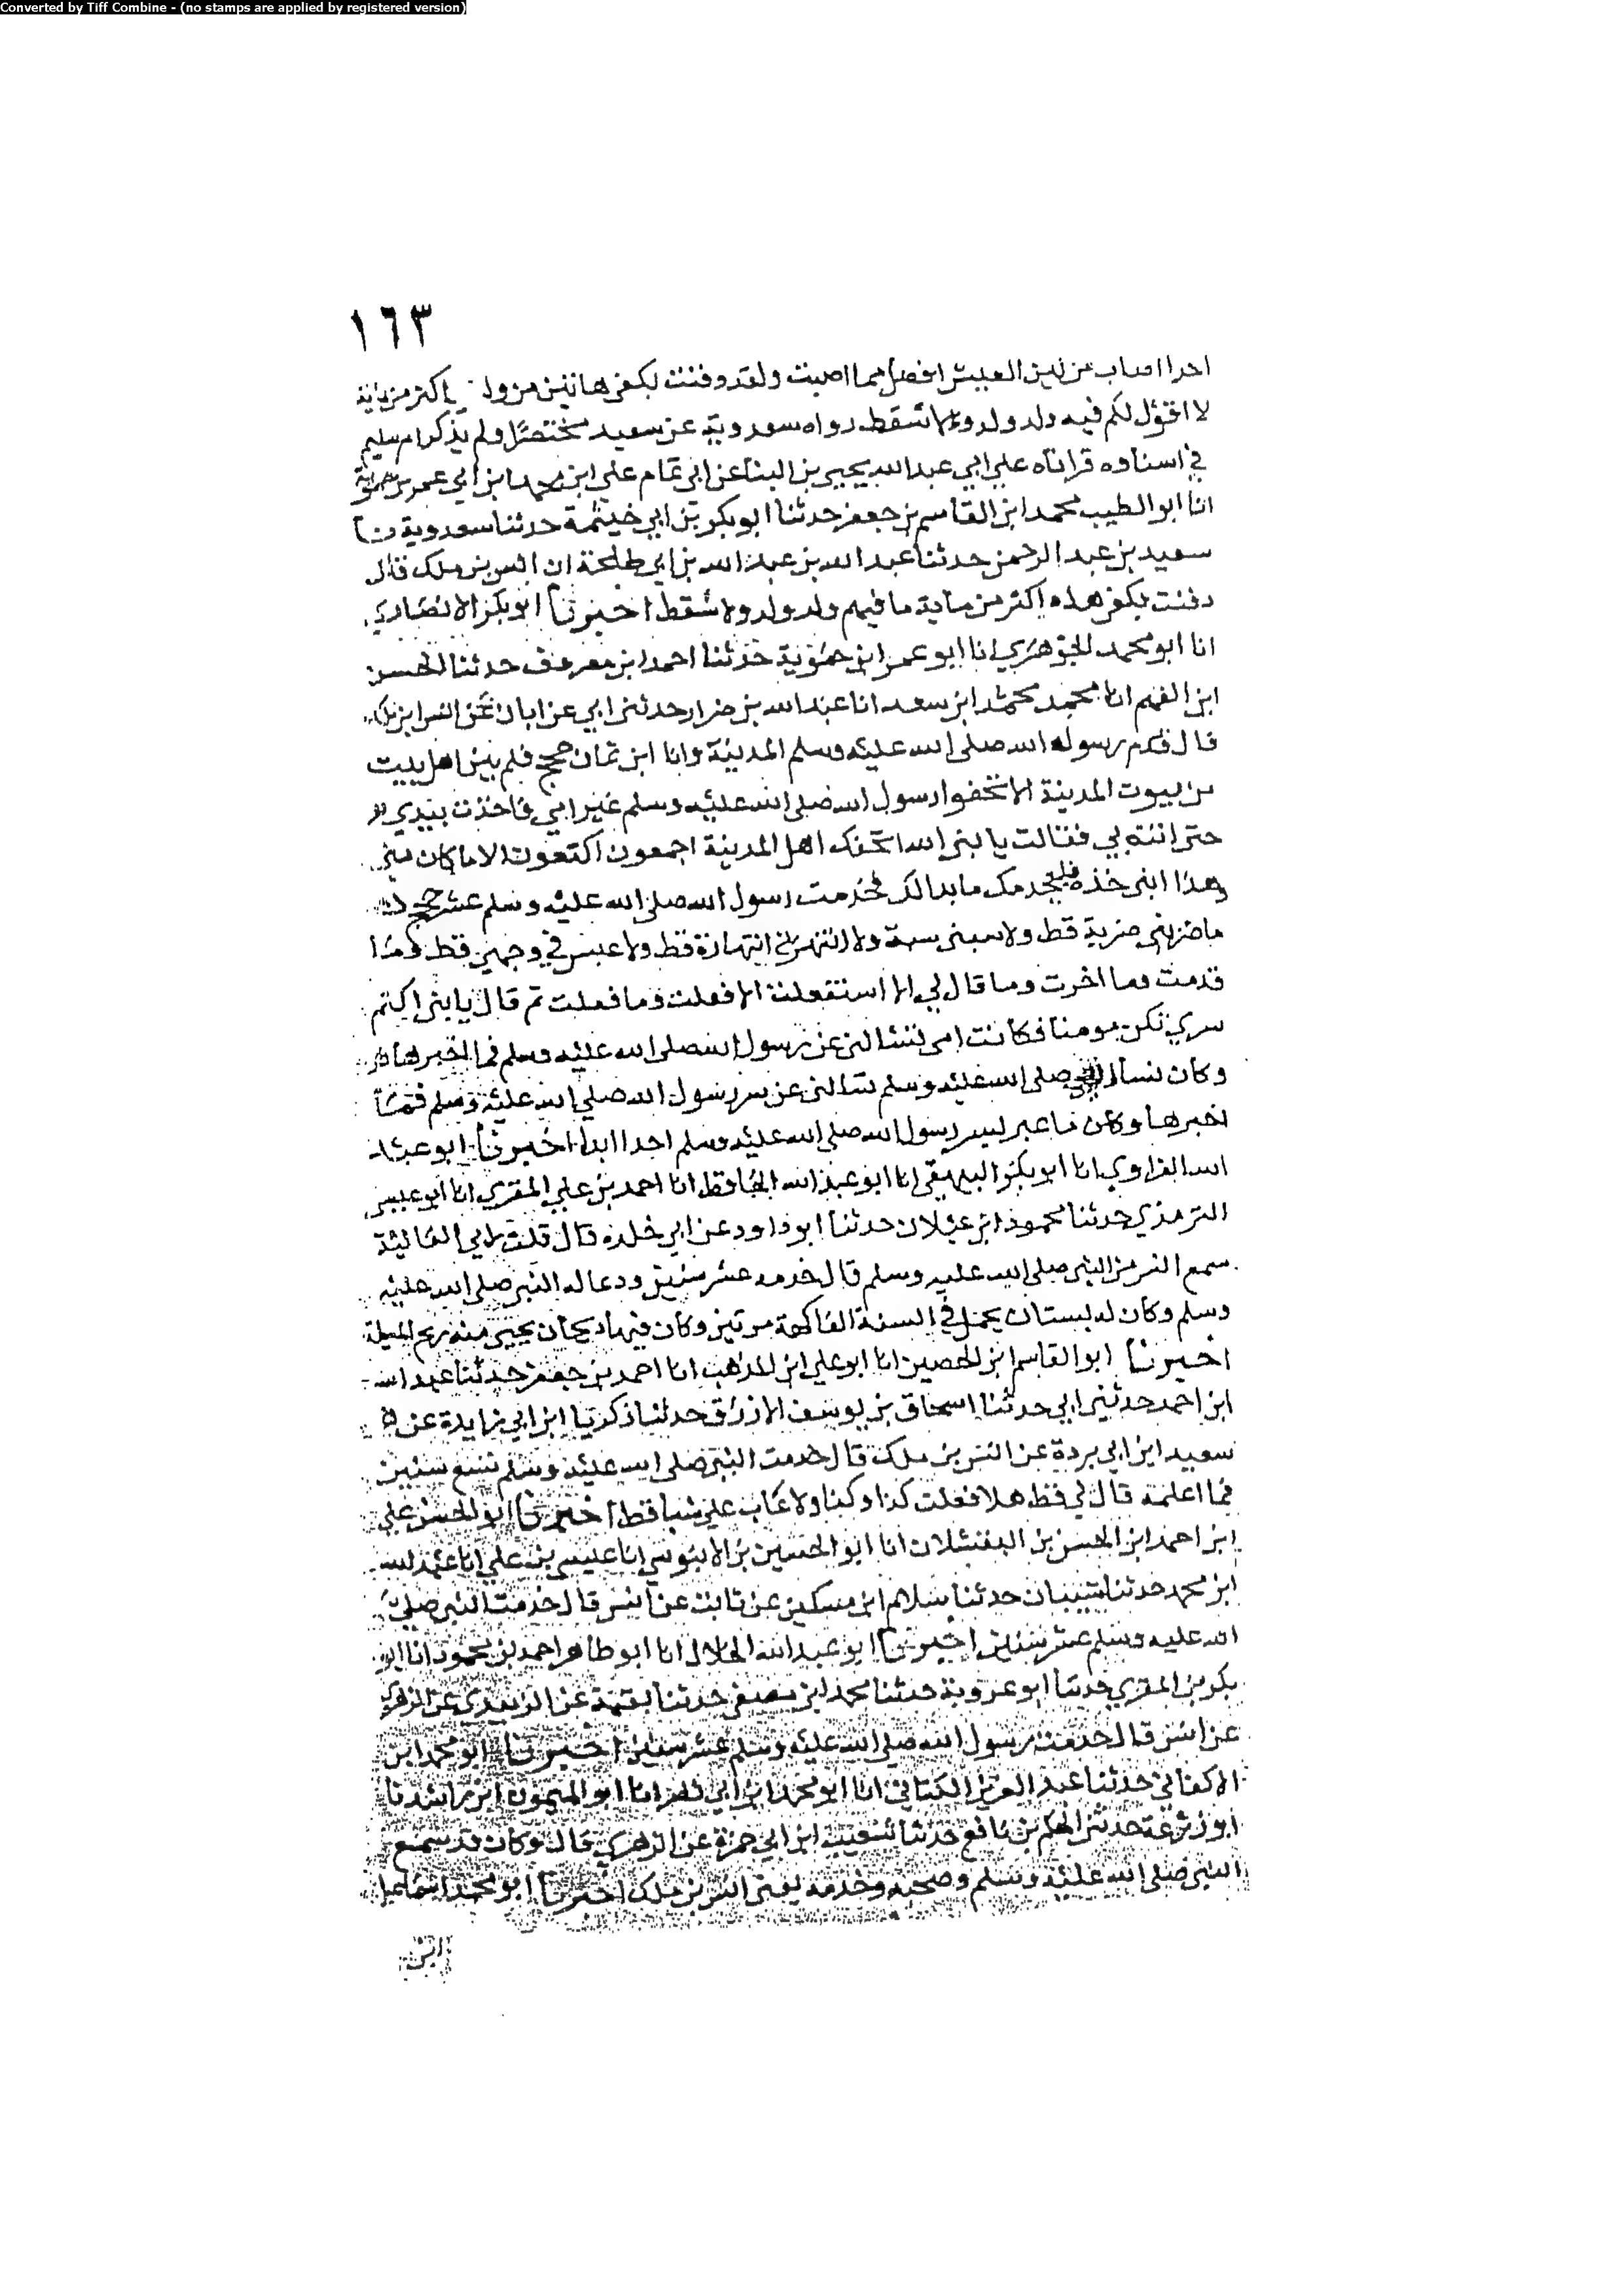 Converted by Tiff Combine - (no stamps are applied by registered version)
١٦٣
احدا اصاب من لين العيش افضل مما اصبت ولقد دفنت بكفي هاتين من ولدي اكثر من ماية
لا اقول لكم فيه ولد ولد ولا سقط رواه سعدوية عن سعيد مختصرا ولم يذكر ام سليم
في اسناده قراناه علي ابي عبد الله يحيى بن البنا عن ابي تمام علي ابن محمد ابن ابي عمر بن حيوية
انا ابو الطيب محمد ابن القاسم بن جعفر حدثنا ابو بكر بن ابي خيثمة حدثنا سعدوية
سعيد بن عبد الرحمن حدثنا عبد الله بن عبد الله بن ابي طلحة ان انس بن ملك قال
دفنت بكفي هذه اكثر من ماية ما فيهم ولد ولد ولا سقط اخبرنا ابو بكر الانصاري
انا ابو محمد الجوهري انا ابو عمر ابن حيوية حدثنا احمد ابن معروف حدثنا الحسن
ابن الفهم انا محمد محمد ابن سعد انا عبد الله بن ضرار حدثني ابي عن ابان عن انس ابن ملك
قال قدم رسول الله صلى الله عليه وسلم المدينة وانا ابن ثمان حجج فلم يبق اهل بيت
من بيوت المدينة الا اتحفوا رسول الله صلى الله عليه وسلم غير امي فاخذت بيدي
حتى اتته بي فقالت يا نبي الله اتحفك اهل المدينة اجمعون اكتعون الا ما كان مني
وهذا ابني خذه فليخدمك ما بدا لك فخدمت رسول الله صلى الله عليه وسلم عشر حجج
ما ضربني ضربة قط ولا سبني سبة ولا انتهرني انتهارة قط ولا عبس في وجهي قط وما
قدمت وما اخرت وما قال لي الا استفعلت الا فعلت وما فعلت ثم قال يا بني اكتم
سري تكن مومنا فكانت امي تسالني عن رسول الله صلى الله عليه وسلم فما اخبرها
وكان نسا النبي صلى الله عليه وسلم تسالني عن سر رسول الله صلى الله عليه وسلم فما
اخبرها وكان ما عبر لسر رسول الله صلى الله عليه وسلم احدا ابدا اخبرنا ابو عبد
الله الفراوي انا ابو بكر البيهقي انا ابو عبد الله الحافظ انا احمد بن علي المقري انا ابو عيسى
الترمذي حدثنا محمود ابن غيلان حدثنا ابو داود عن ابي خلدة قال قلت لابي العالية
سمع انس من النبي صلى الله عليه وسلم قال خدمه عشر سنين ودعا له النبي صلى الله عليه
وسلم وكان له بستان يحمل في السنة الفاكهة مرتين وكان فيها ريحان يجيى منه ريح المسك
اخبرنا ابو القاسم ابن الحصين انا ابو علي ابن المذهب انا احمد بن جعفر حدثنا عبد الله
ابن احمد حدثني ابي حدثنا اسحاق بن يوسف الازرق حدثنا زكريا ابن ابي زايدة عن
سعيد ابن ابي بردة عن انس بن ملك قال خدمت النبي صلى الله عليه وسلم تسع سنين
فما اعلمه قال لي قط هلا فعلت كذا وكذا ولا عاب علي شيا قط اخبرنا ابو الحسن علي
ابن احمد ابن الحسن بن البقشلان انا ابو الحسين بن الابنوسي انا عيسى بن علي انا عبد الله
ابن محمد حدثنا شيبان حدثنا سلام ابن مسكين عن ثابت عن انس قال خدمت النبي صلى
الله عليه وسلم عشر سنين اخبرنا ابو عبد الله الخلال انا ابو طاهر احمد بن محمود انا ابو
بكر بن المقري حدثنا ابو عروبة حدثنا محمد ابن مصفى حدثنا بقية عن الزبيدي عن الزهري
عن انس قال خدمت رسول الله صلى الله عليه وسلم عشر سنين اخبرنا ابو محمد ابن
الاكفاني حدثنا عبد العزيز الكتاني انا ابو محمد ابن ابي نصر انا ابو الميمون ابن راشد نا
ابو زرعة حدثني الحكم بن نافع حدثنا شعيب ابن ابي حمزة عن الزهري قال وكان قد سمع
النبي صلى الله عليه وسلم وصحبه وخدمه يعني انس بن ملك اخبرنا ابو محمد اسماعيل
ابن